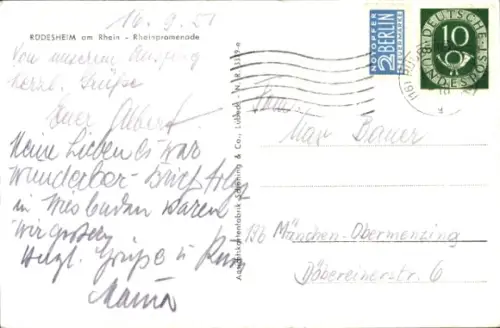 16.9.51
RÜDESHEIM am Rhein - Rheinpromenade
Von unserem Ausflug
herzl. Grüße
Euer Albert
Meine Lieben es war
wunderbar - Brief folgt
in Wiesbaden waren
wir gestern
Herzl. Grüße u. Kuss
Mama
Ansichtskartenfabrik Schöning & Co., Lübeck
NOTOPFER
2 BERLIN
STEUERMARKE
DEUTSCHE
10
BUNDESPOST
(16) RÜD
Familie
Max Bauer
13b München-Obermenzing
Döbereinerstr. 6